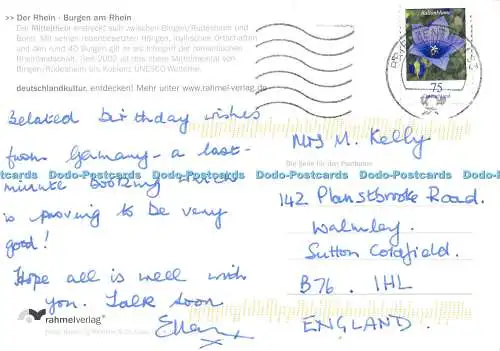 >> Der Rhein · Burgen am Rhein
Der Mittelrhein erstreckt sich zwischen Bingen/Rüdesheim und
Bonn. Mit seinen rebenbesetzten Hängen, idyllischen Ortschaften
und den rund 40 Burgen gilt er als Inbegriff der romantischen
Rheinlandschaft. Seit 2002 ist das obere Mittelrheintal von
Bingen/Rüdesheim bis Koblenz UNESCO Welterbe.
deutschlandkultur. entdecken! Mehr unter www.rahmel-verlag.de
Belated birthday wishes
from Germany - a last-
minute booking which
is proving to be very
good!
Hope all is well with
you. Talk soon
Ellen x
rahmelverlag
Ballonblume
75
Mrs M. Kelly
Die Seite für den Postboten
142 Planstbrooke Road.
Walmley.
Sutton Coldfield.
B76. 1HL
ENGLAND.
Dodo-Postcards Dodo-Postcards Dodo-Postcards Dodo-Postcards Dodo-Postcards